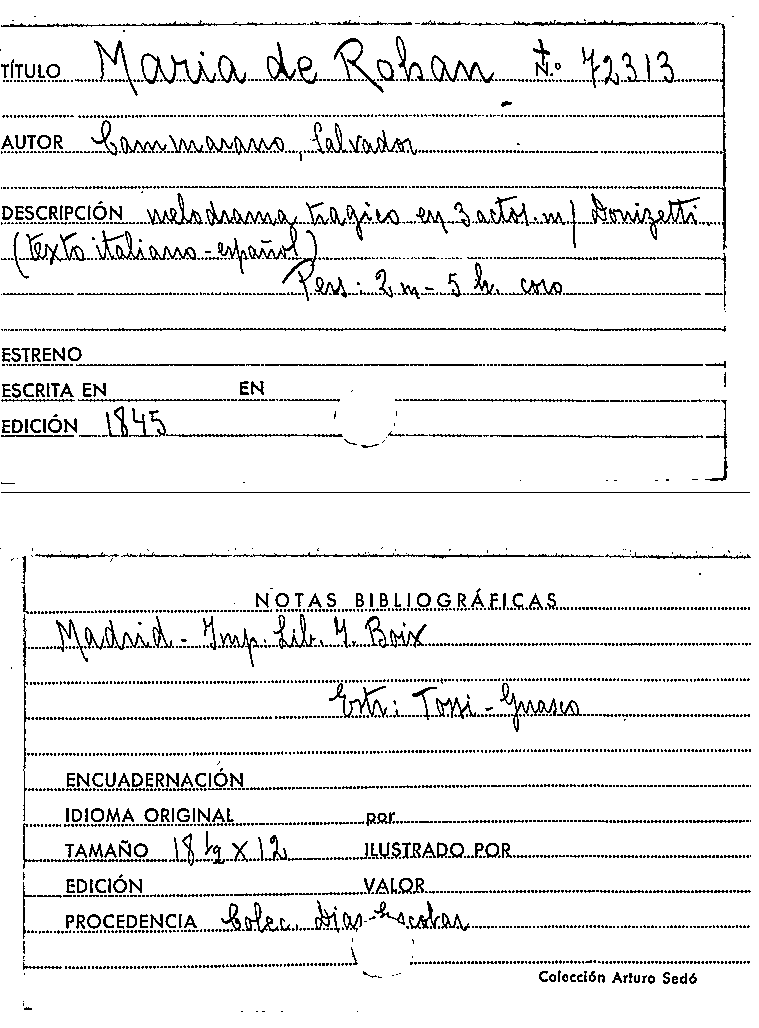 TÍTULO Maria de Rohan N.º 72313
AUTOR Cammarano, Salvador
DESCRIPCIÓN melodrama tragico en 3 actos. m/ Donizetti
(texto italiano-español)
Pers: 2 m - 5 h. coro
ESTRENO
ESCRITA EN EN
EDICIÓN 1845
NOTAS BIBLIOGRÁFICAS
Madrid - Imp. Lib. Y. Boix
Estr: Tossi - Guasco
ENCUADERNACIÓN
IDIOMA ORIGINAL por
TAMAÑO 18 1/2 X 12 ILUSTRADO POR
EDICIÓN VALOR
PROCEDENCIA Colec. Dias-Escobar
Colección Arturo Sedó